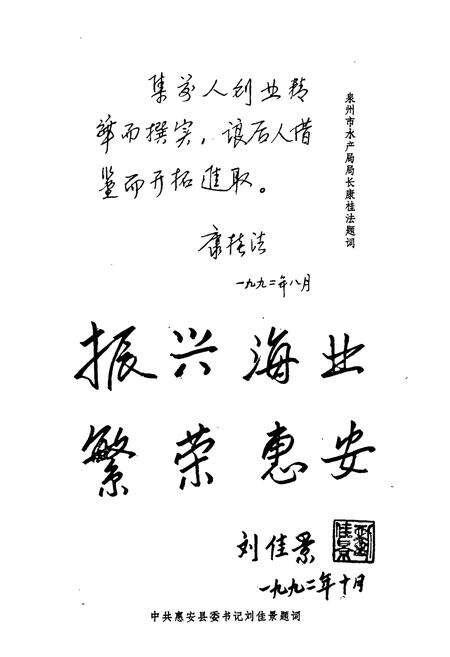 集前人创业精
华而撰实，让后人借
鉴而开拓进取。
康桂法
一九九二年八月
泉州市水产局局长康桂法题词
振兴海业
繁荣惠安
刘佳景
一九九二年十月
中共惠安县委书记刘佳景题词